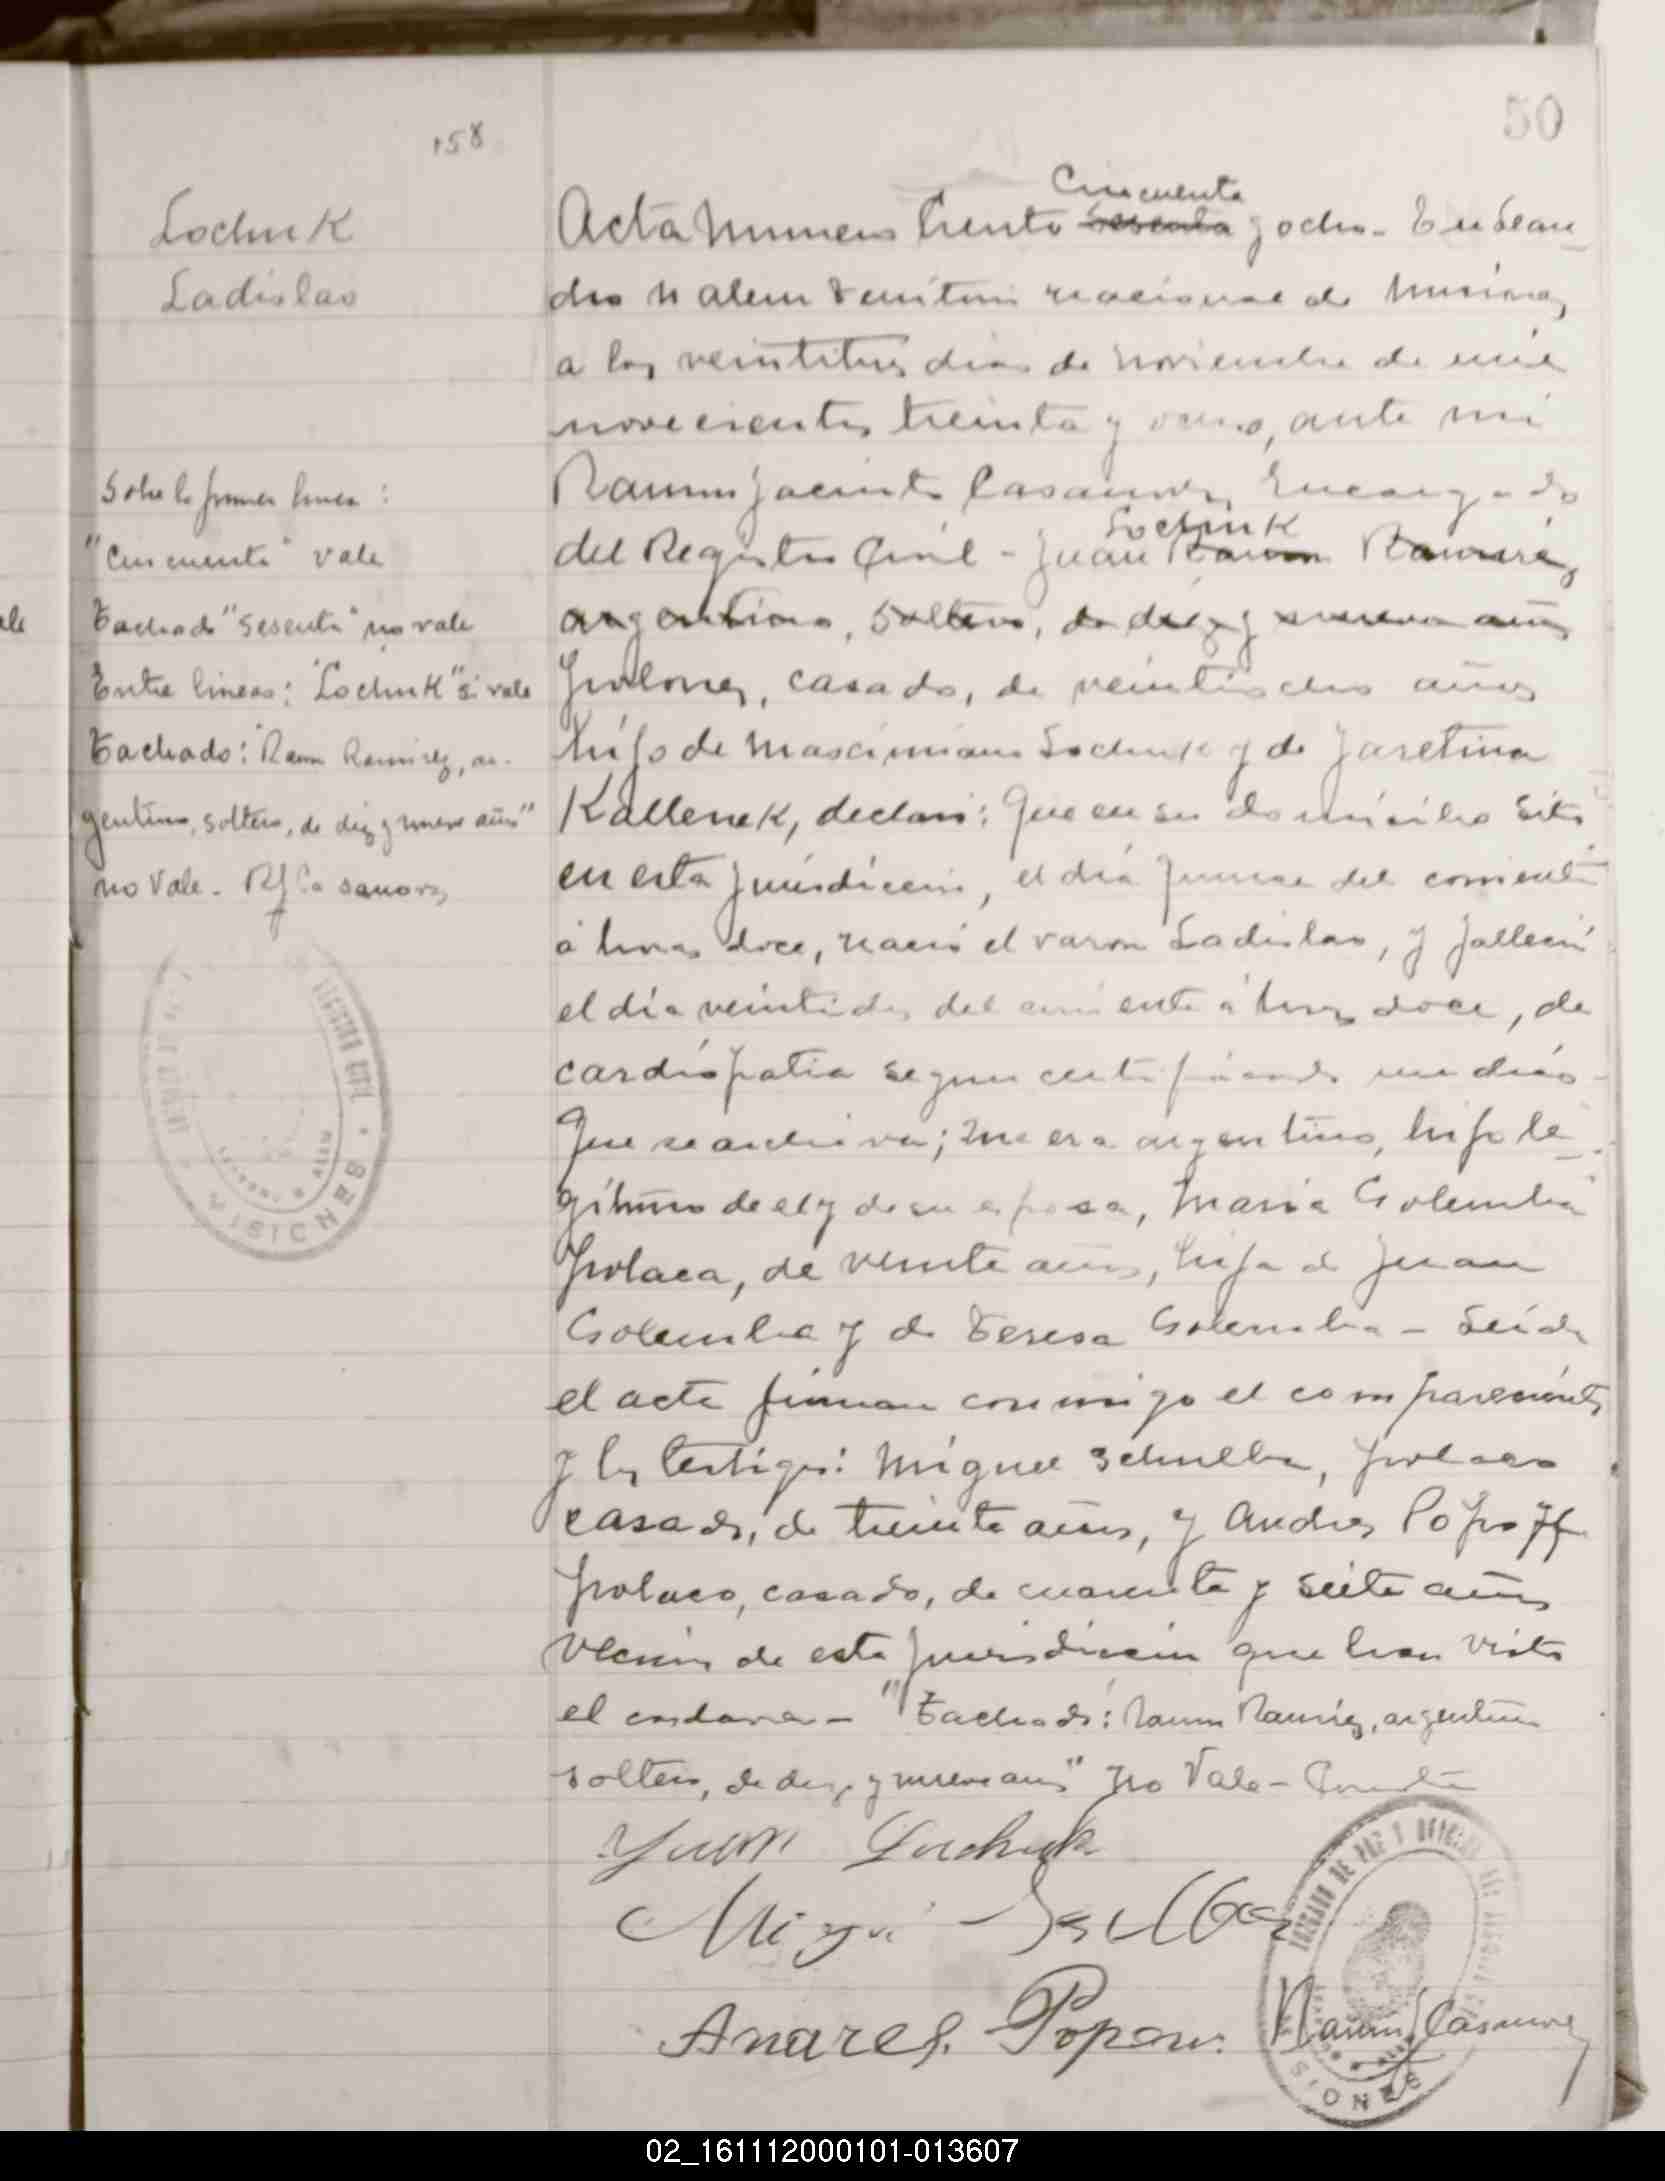 50
158
Lochuk
Ladislao
Acta Numero Ciento Cincuenta sesenta y ocho - En Lean-
dro N Alem Territorio nacional de Misiones,
a los veintitres dias de Noviembre de mil
novecientos treinta y , ante mi
Ramon Jacinto Casanova, Encargado
del Registro Civil - Juan Lochuk Ramon Ramirez,
argentino, soltero, de diez y nueve años
polones, casado, de veintiocho años
hijo de Mascimiano Lochuk y de
Kallenek, declaró: Que en su domicilio sito
en esta jurisdiccion, el día primero del corriente
á horas doce, nació el varon Ladislao, y falleció
el día veintidos del corriente á horas doce, de
cardiopatia segun certificado medico
que se archiva; Que era argentino, hijo le-
gitimo de el y de su esposa, Maria Golemba
polaca, de veinte años, hija de Juan
Golemba y de Teresa Golemba - Leida
el acta firman conmigo el compareciente
y los testigos: Miguel Schulba, polaco
casado, de treinta años, y Andres Popoff
polaco, casado, de cuarenta y siete años
vecinos de esta jurisdiccion que han visto
el cadaver - "Tachado: Ramon Ramirez, argentino
soltero, de diez y nueve años" no Vale -
Juan Lochuk
Andres Popow
Ramon J Casanova
Sobre la primer linea:
"Cincuenta" vale
Tachado "sesenta" no vale
Entre lineas: "Lochuk" si vale
Tachado: "Ramon Ramirez, ar-
gentino, soltero, de diez y nueve años"
no Vale - RJ Casanova
REGISTRO CIVIL
LEANDRO N ALEM
MISIONES
JUZGADO DE PAZ Y OFICINA DEL REGISTRO
N ALEM
MISIONES
02_161112000101-013607